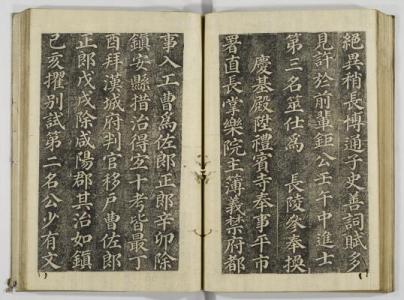 絶異稍長博通子史善詞賦多
見許於前輩鉅公壬午中進士
第三名筮仕爲 長陵參奉換
慶基殿陞禮賓寺奉事平市
署直長掌樂院主薄義禁府都
事入工曹爲佐郎正郎辛卯除
鎮安縣措治得宜十考皆最丁
酉拜漢城府判官移戶曹佐郎
正郎戊戌除咸陽郡其治如鎮
己亥擢別試第二名公少有文